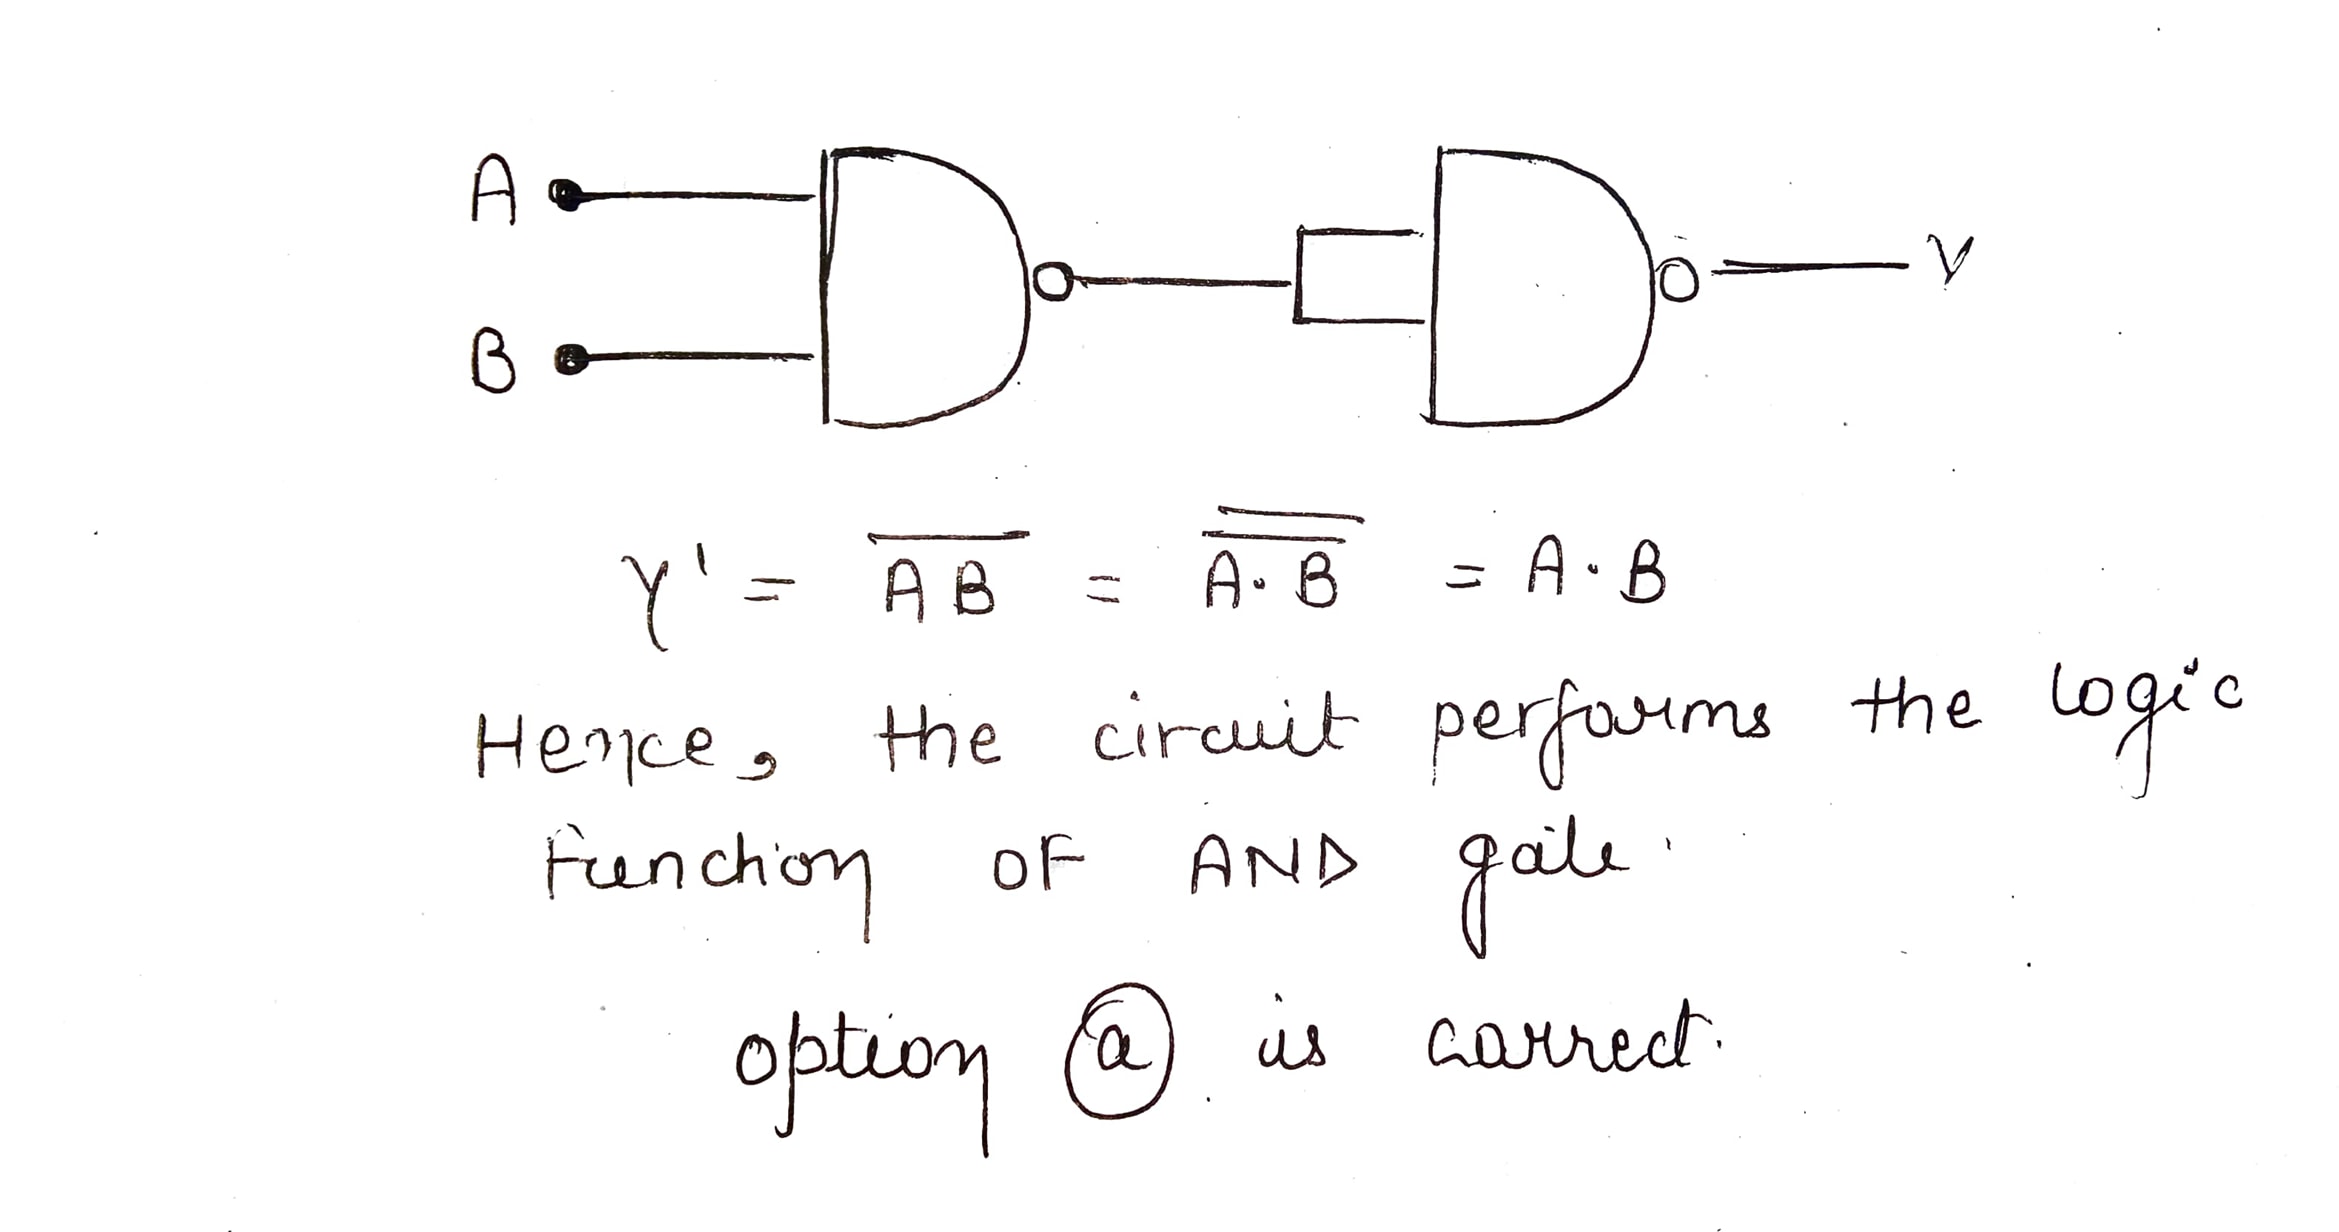 A
B
Y
Y' = \overline{AB} = \overline{\overline{A·B}} = A·B
Hence, the circuit performs the logic
Function OF AND gate.
option ⓐ is correct.